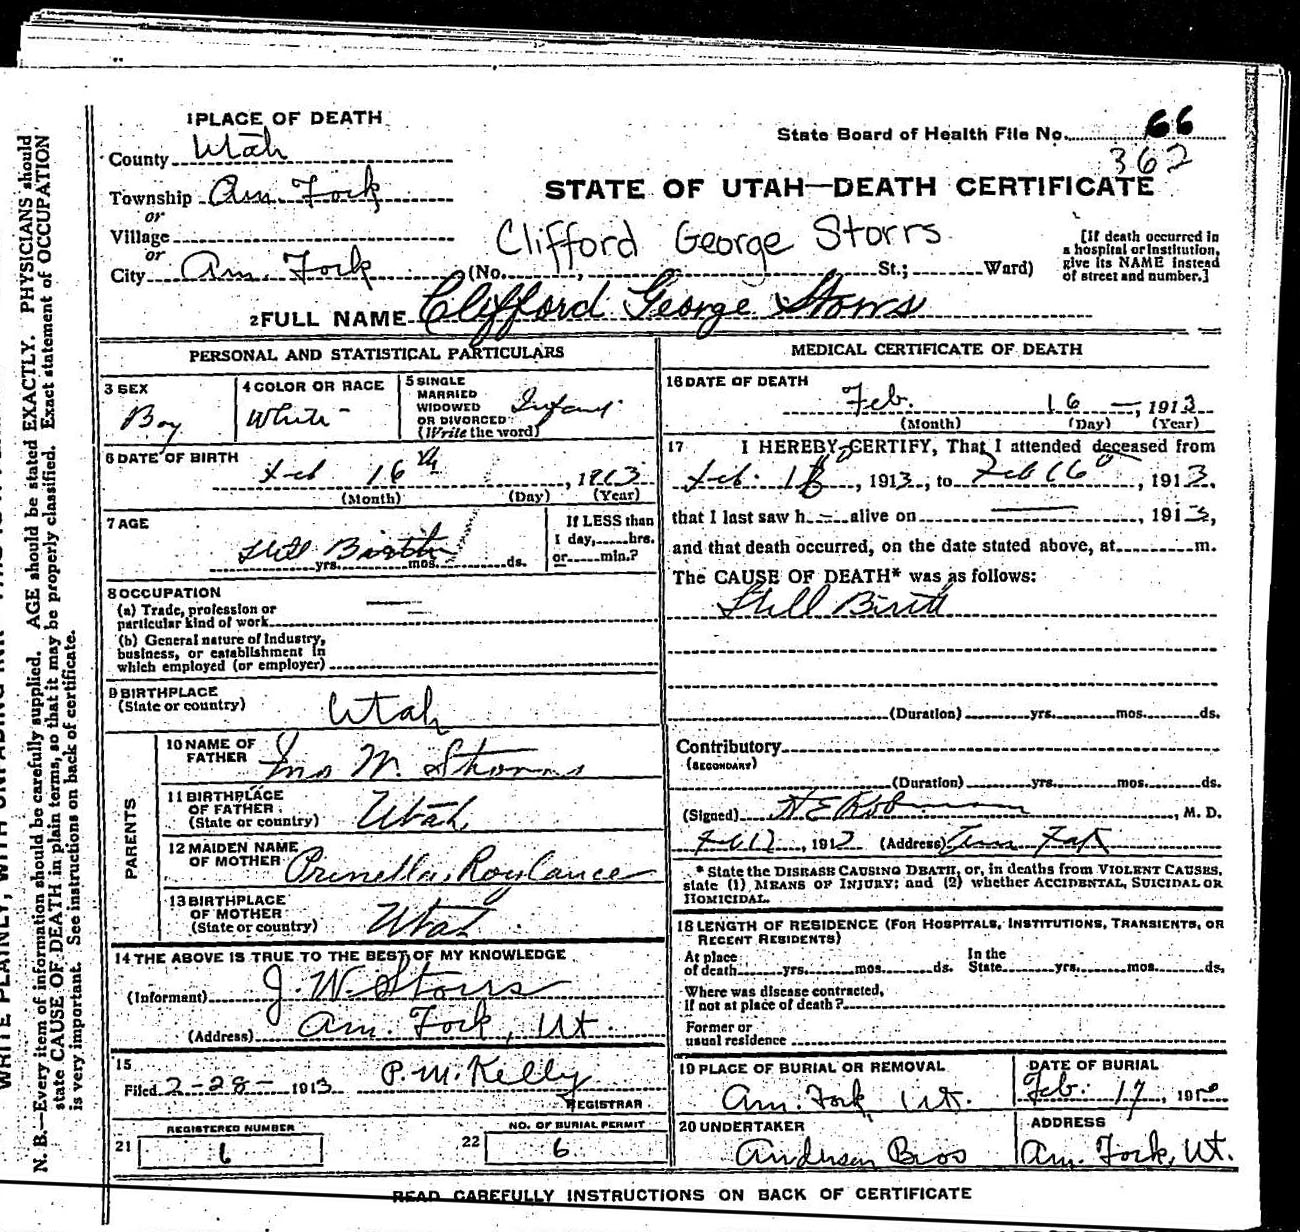 1 PLACE OF DEATH
State Board of Health File No. 66
362
County Utah
STATE OF UTAH—DEATH CERTIFICATE
Township Am. Fork
or
Village
or
Clifford George Storrs
City Am. Fork (No. , St.; Ward)
[If death occurred in
a hospital or institution,
give its NAME instead
of street and number.]
2 FULL NAME Clifford George Storrs
PERSONAL AND STATISTICAL PARTICULARS
3 SEX
Boy
4 COLOR OR RACE
White
5 SINGLE
MARRIED
WIDOWED
OR DIVORCED
(Write the word)
Infant
6 DATE OF BIRTH
Feb 16th, 1913
(Month) (Day) (Year)
7 AGE
Still Birth
yrs. mos. ds.
If LESS than
1 day, hrs.
or min.?
8 OCCUPATION
(a) Trade, profession or
particular kind of work
(b) General nature of Industry,
business, or establishment in
which employed (or employer)
9 BIRTHPLACE
(State or country)
Utah
PARENTS
10 NAME OF
FATHER
Jno W. Storrs
11 BIRTHPLACE
OF FATHER
(State or country)
Utah
12 MAIDEN NAME
OF MOTHER
Prinella Roylance
13 BIRTHPLACE
OF MOTHER
(State or country)
Utah
14 THE ABOVE IS TRUE TO THE BEST OF MY KNOWLEDGE
(Informant) J. W. Storrs
(Address) Am. Fork, Ut.
15
Filed 2-28- 1913 P. M. Kelly
REGISTRAR
REGISTERED NUMBER
21 6
NO. OF BURIAL PERMIT
22 6
MEDICAL CERTIFICATE OF DEATH
16 DATE OF DEATH
Feb. 16 —, 1913
(Month) (Day) (Year)
17 I HEREBY CERTIFY, That I attended deceased from
Feb. , 1913, to Feb 16, 1913,
that I last saw h alive on , 1913,
and that death occurred, on the date stated above, at m.
The CAUSE OF DEATH* was as follows:
Still Birth
(Duration) yrs. mos. ds.
Contributory
(SECONDARY)
(Duration) yrs. mos. ds.
(Signed) , M. D.
Feb 17, 191 (Address) Am Fork
* State the DISEASE CAUSING DEATH, or, in deaths from VIOLENT CAUSES,
state (1) MEANS OF INJURY; and (2) whether ACCIDENTAL, SUICIDAL OR
HOMICIDAL.
18 LENGTH OF RESIDENCE (FOR HOSPITALS, INSTITUTIONS, TRANSIENTS, OR
RECENT RESIDENTS)
At place
of death yrs. mos. ds.
In the
State yrs. mos. ds.
Where was disease contracted,
if not at place of death?
Former or
usual residence
19 PLACE OF BURIAL OR REMOVAL
Am. Fork, Ut.
DATE OF BURIAL
Feb. 17, 191
20 UNDERTAKER
Anderson Bros
ADDRESS
Am. Fork, Ut.
READ CAREFULLY INSTRUCTIONS ON BACK OF CERTIFICATE
WRITE PLAINLY, WITH UNFADING INK
N. B.—Every item of information should be carefully supplied. AGE should be stated EXACTLY. PHYSICIANS should
state CAUSE OF DEATH in plain terms, so that it may be properly classified. Exact statement of OCCUPATION
is very important. See instructions on back of certificate.